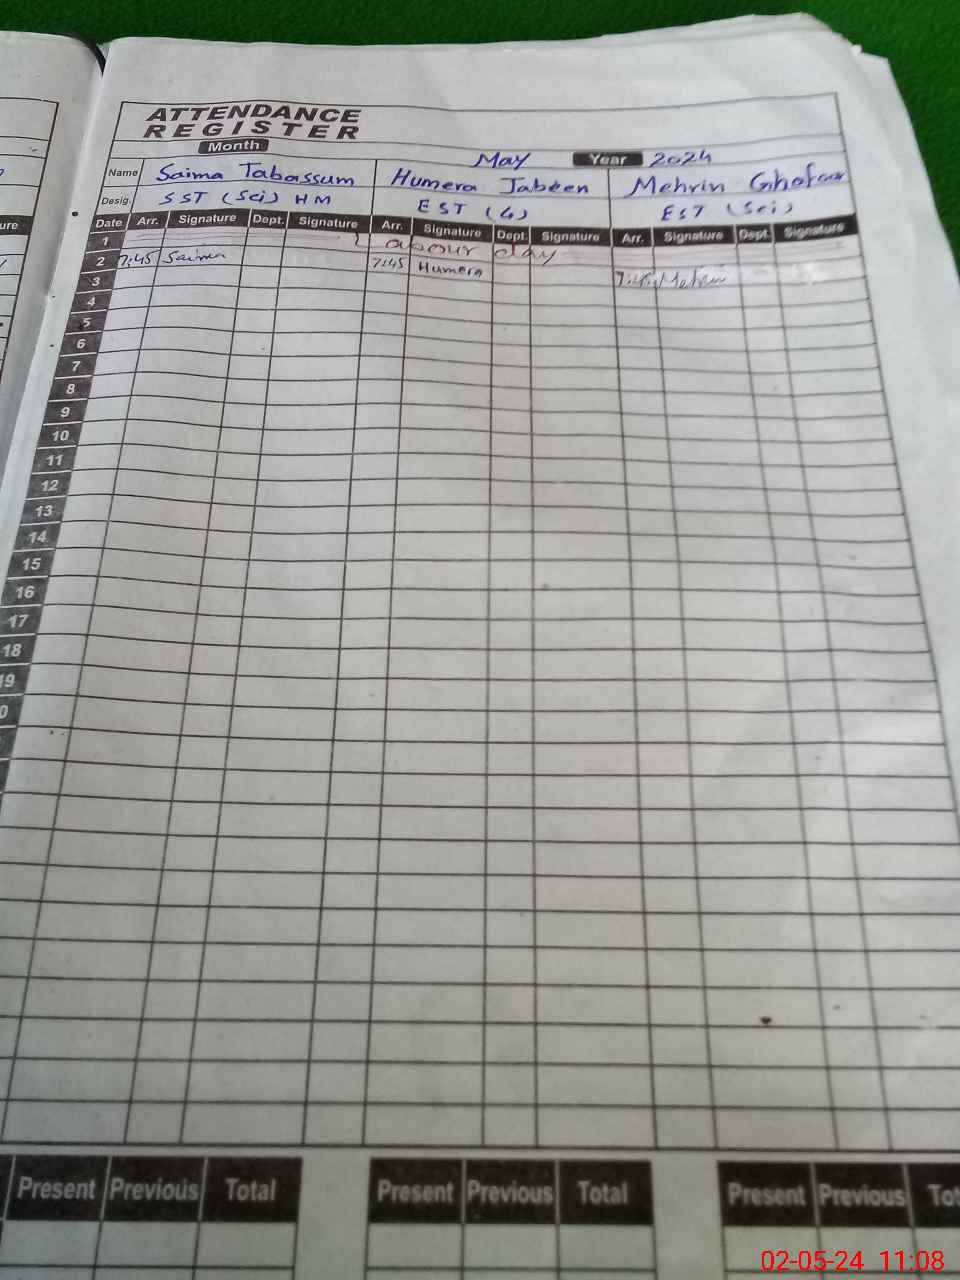 ATTENDANCE
REGISTER
Month May Year 2024
Name Saima Tabassum Humera Jabeen Mehrin Ghafoor
Desig. SST (Sci) HM EST (G) EST (Sci)
Date Arr. Signature Dept. Signature Arr. Signature Dept. Signature Arr. Signature Dept. Signature
1 Labour day
2 7:45 Saima 7:45 Humera 7:45 Mehrin
3
4
5
6
7
8
9
10
11
12
13
14
15
16
17
18
19
Present Previous Total Present Previous Total Present Previous
02-05-24 11:08